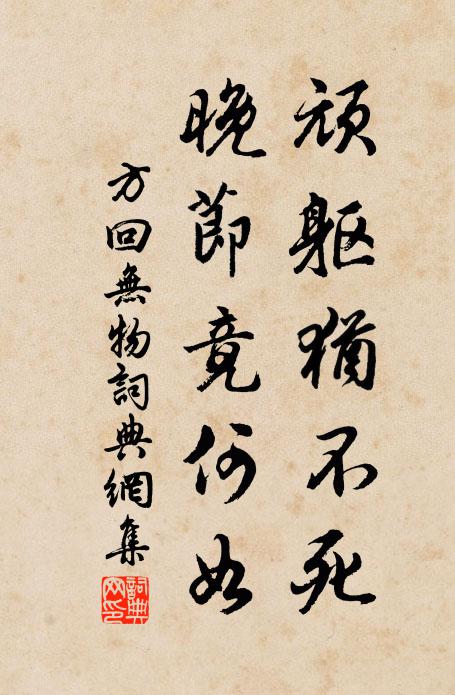 頑軀猶不死
晚節竟何如
方回無物詞典網集
詞典網印